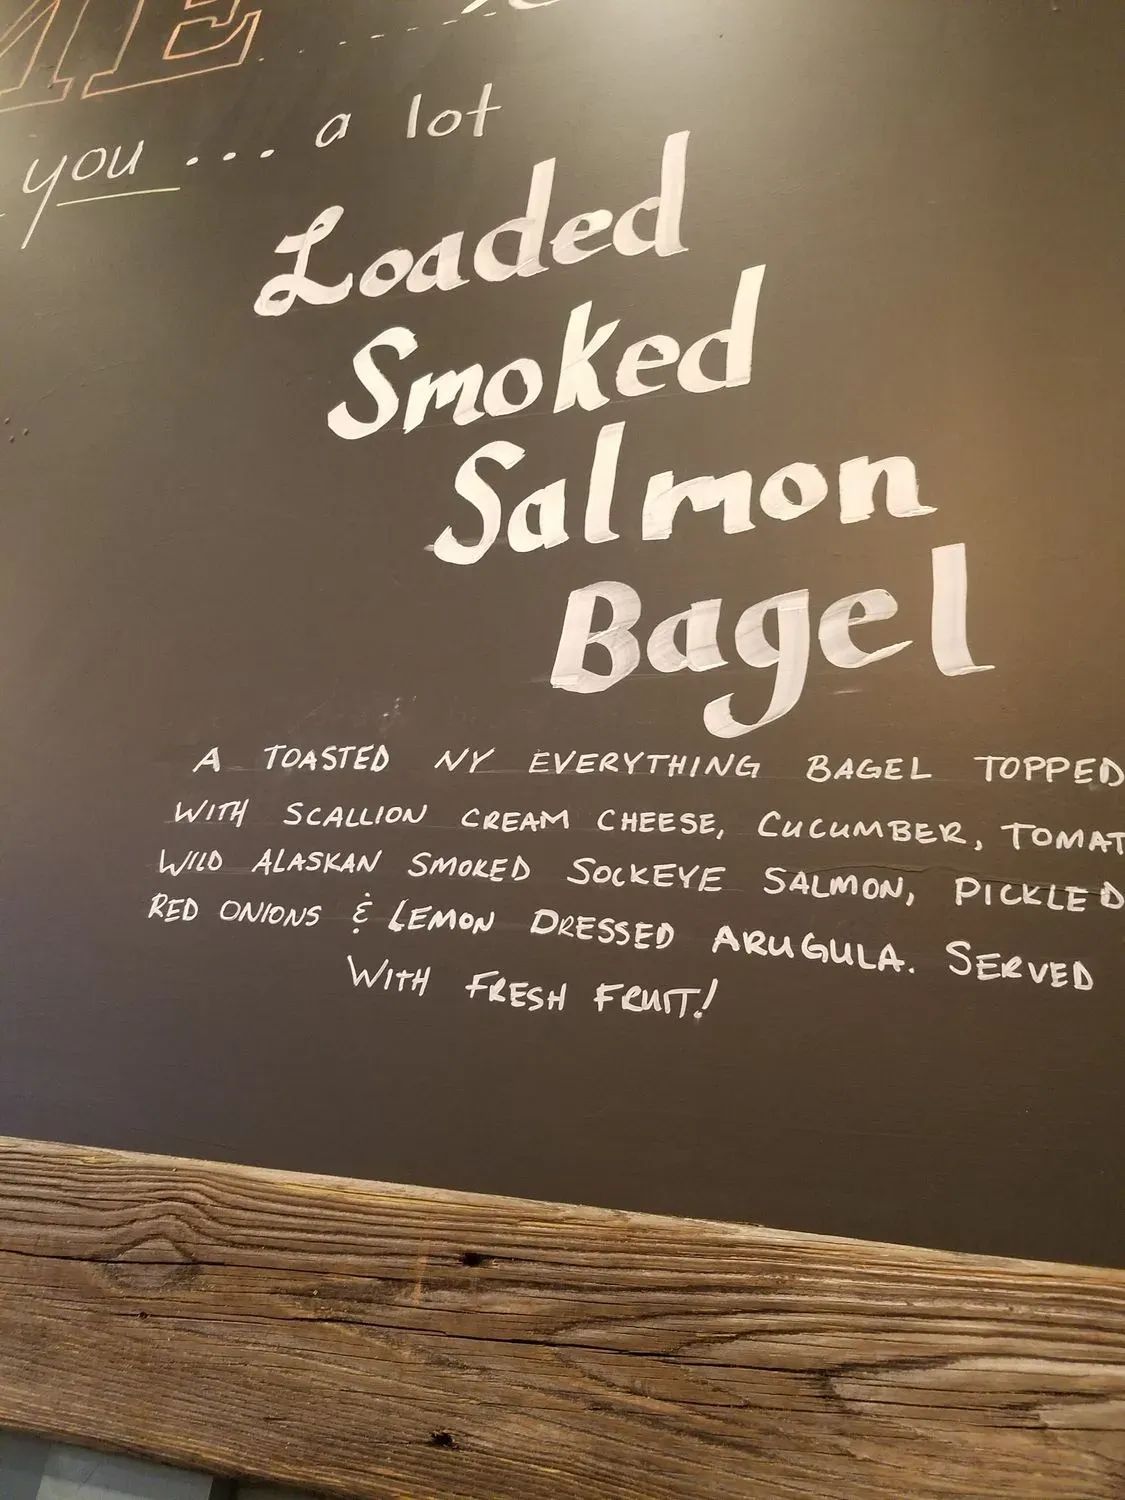 ME
you... a lot
Loaded
Smoked
Salmon
Bagel
A TOASTED NY EVERYTHING BAGEL TOPPED
WITH SCALLION CREAM CHEESE, CUCUMBER, TOMAT
WILD ALASKAN SMOKED SOCKEYE SALMON, PICKLED
RED ONIONS & LEMON DRESSED ARUGULA. SERVED
WITH FRESH FRUIT!